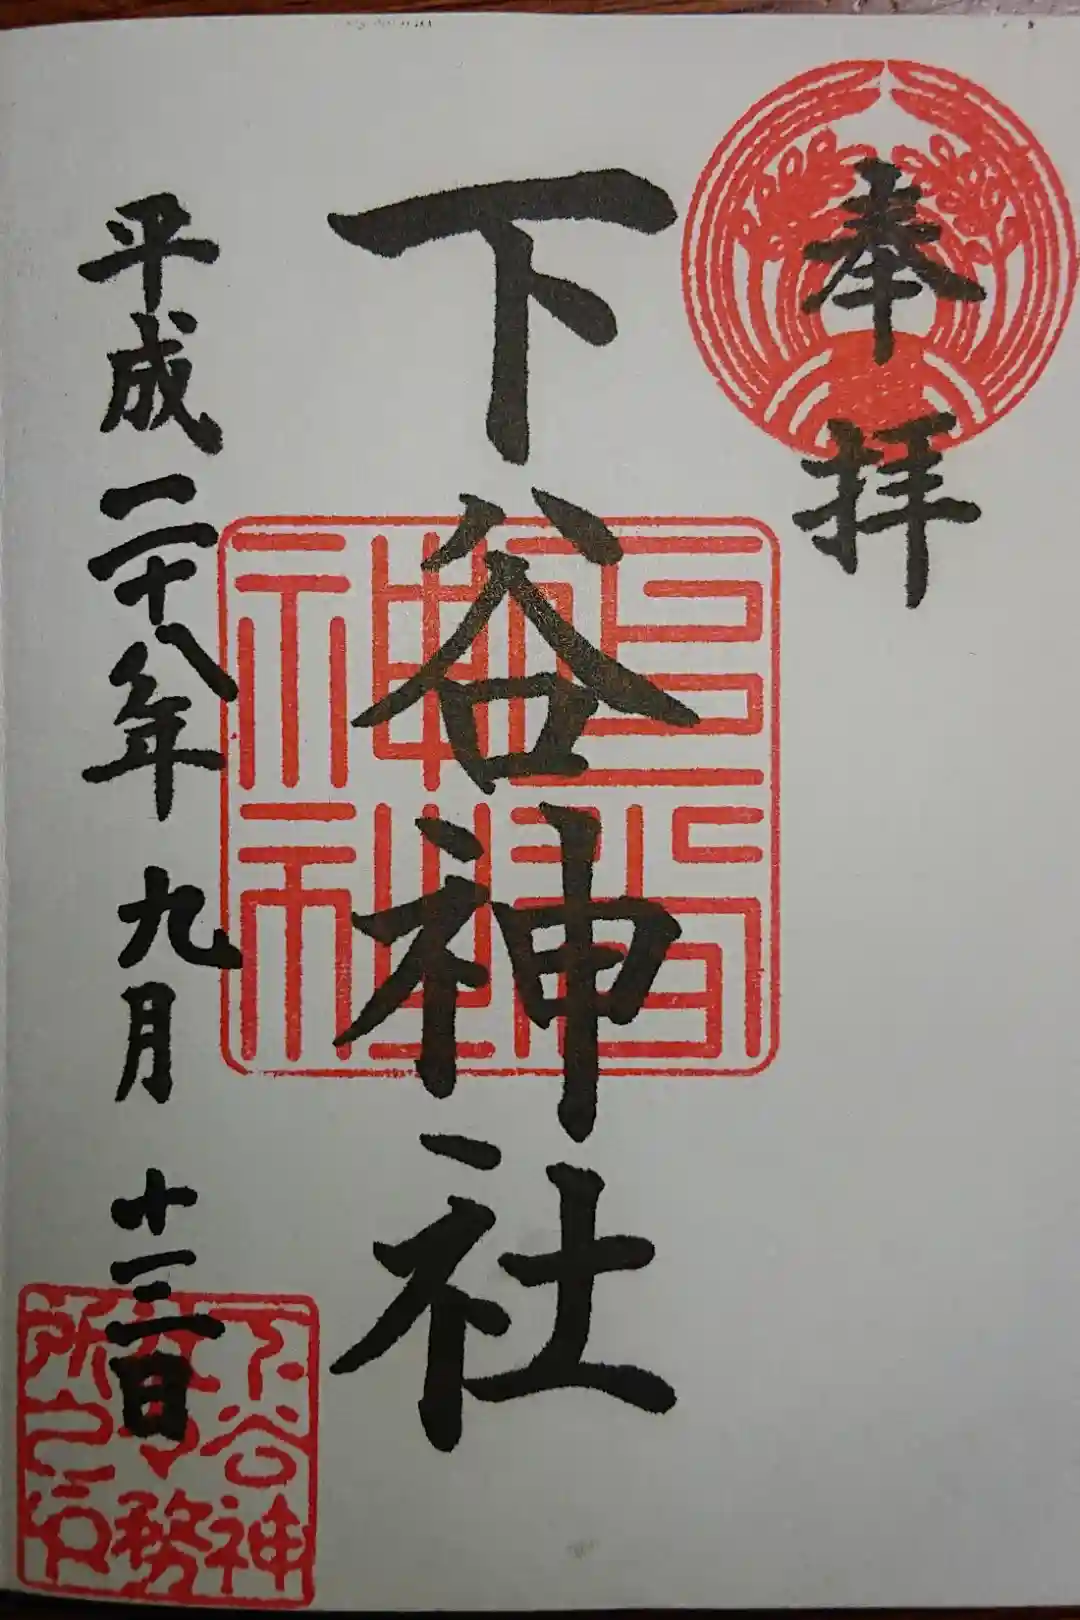 奉拝
下谷神社
平成二十八年九月十三日
下谷神
務
所之印